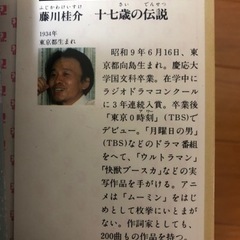 ふじかわけいすけ
藤川桂介
さい でんせつ
十七歳の伝説
1934年
東京都生まれ
昭和9年6月16日、東
京都向島生まれ。慶応大
学国文科卒業。在学中に
ラジオドラマコンクール
に3年連続入賞。卒業後
「東京0時刻」(TBS)で
デビュー。「月曜日の男」
(TBS)などのドラマ番組
をへて、「ウルトラマン」
「快獣ブースカ」などの実
写作品を手がける。アニ
メは「ムーミン」をはじ
めとして枚挙にいとまが
ない。作詞家としても、
200曲もの作品を持つ。